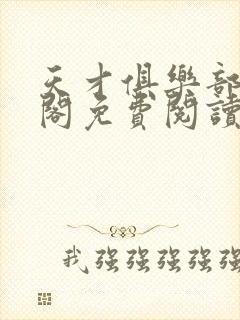 天才俱樂部
閣免費閱讀
我強強強強強